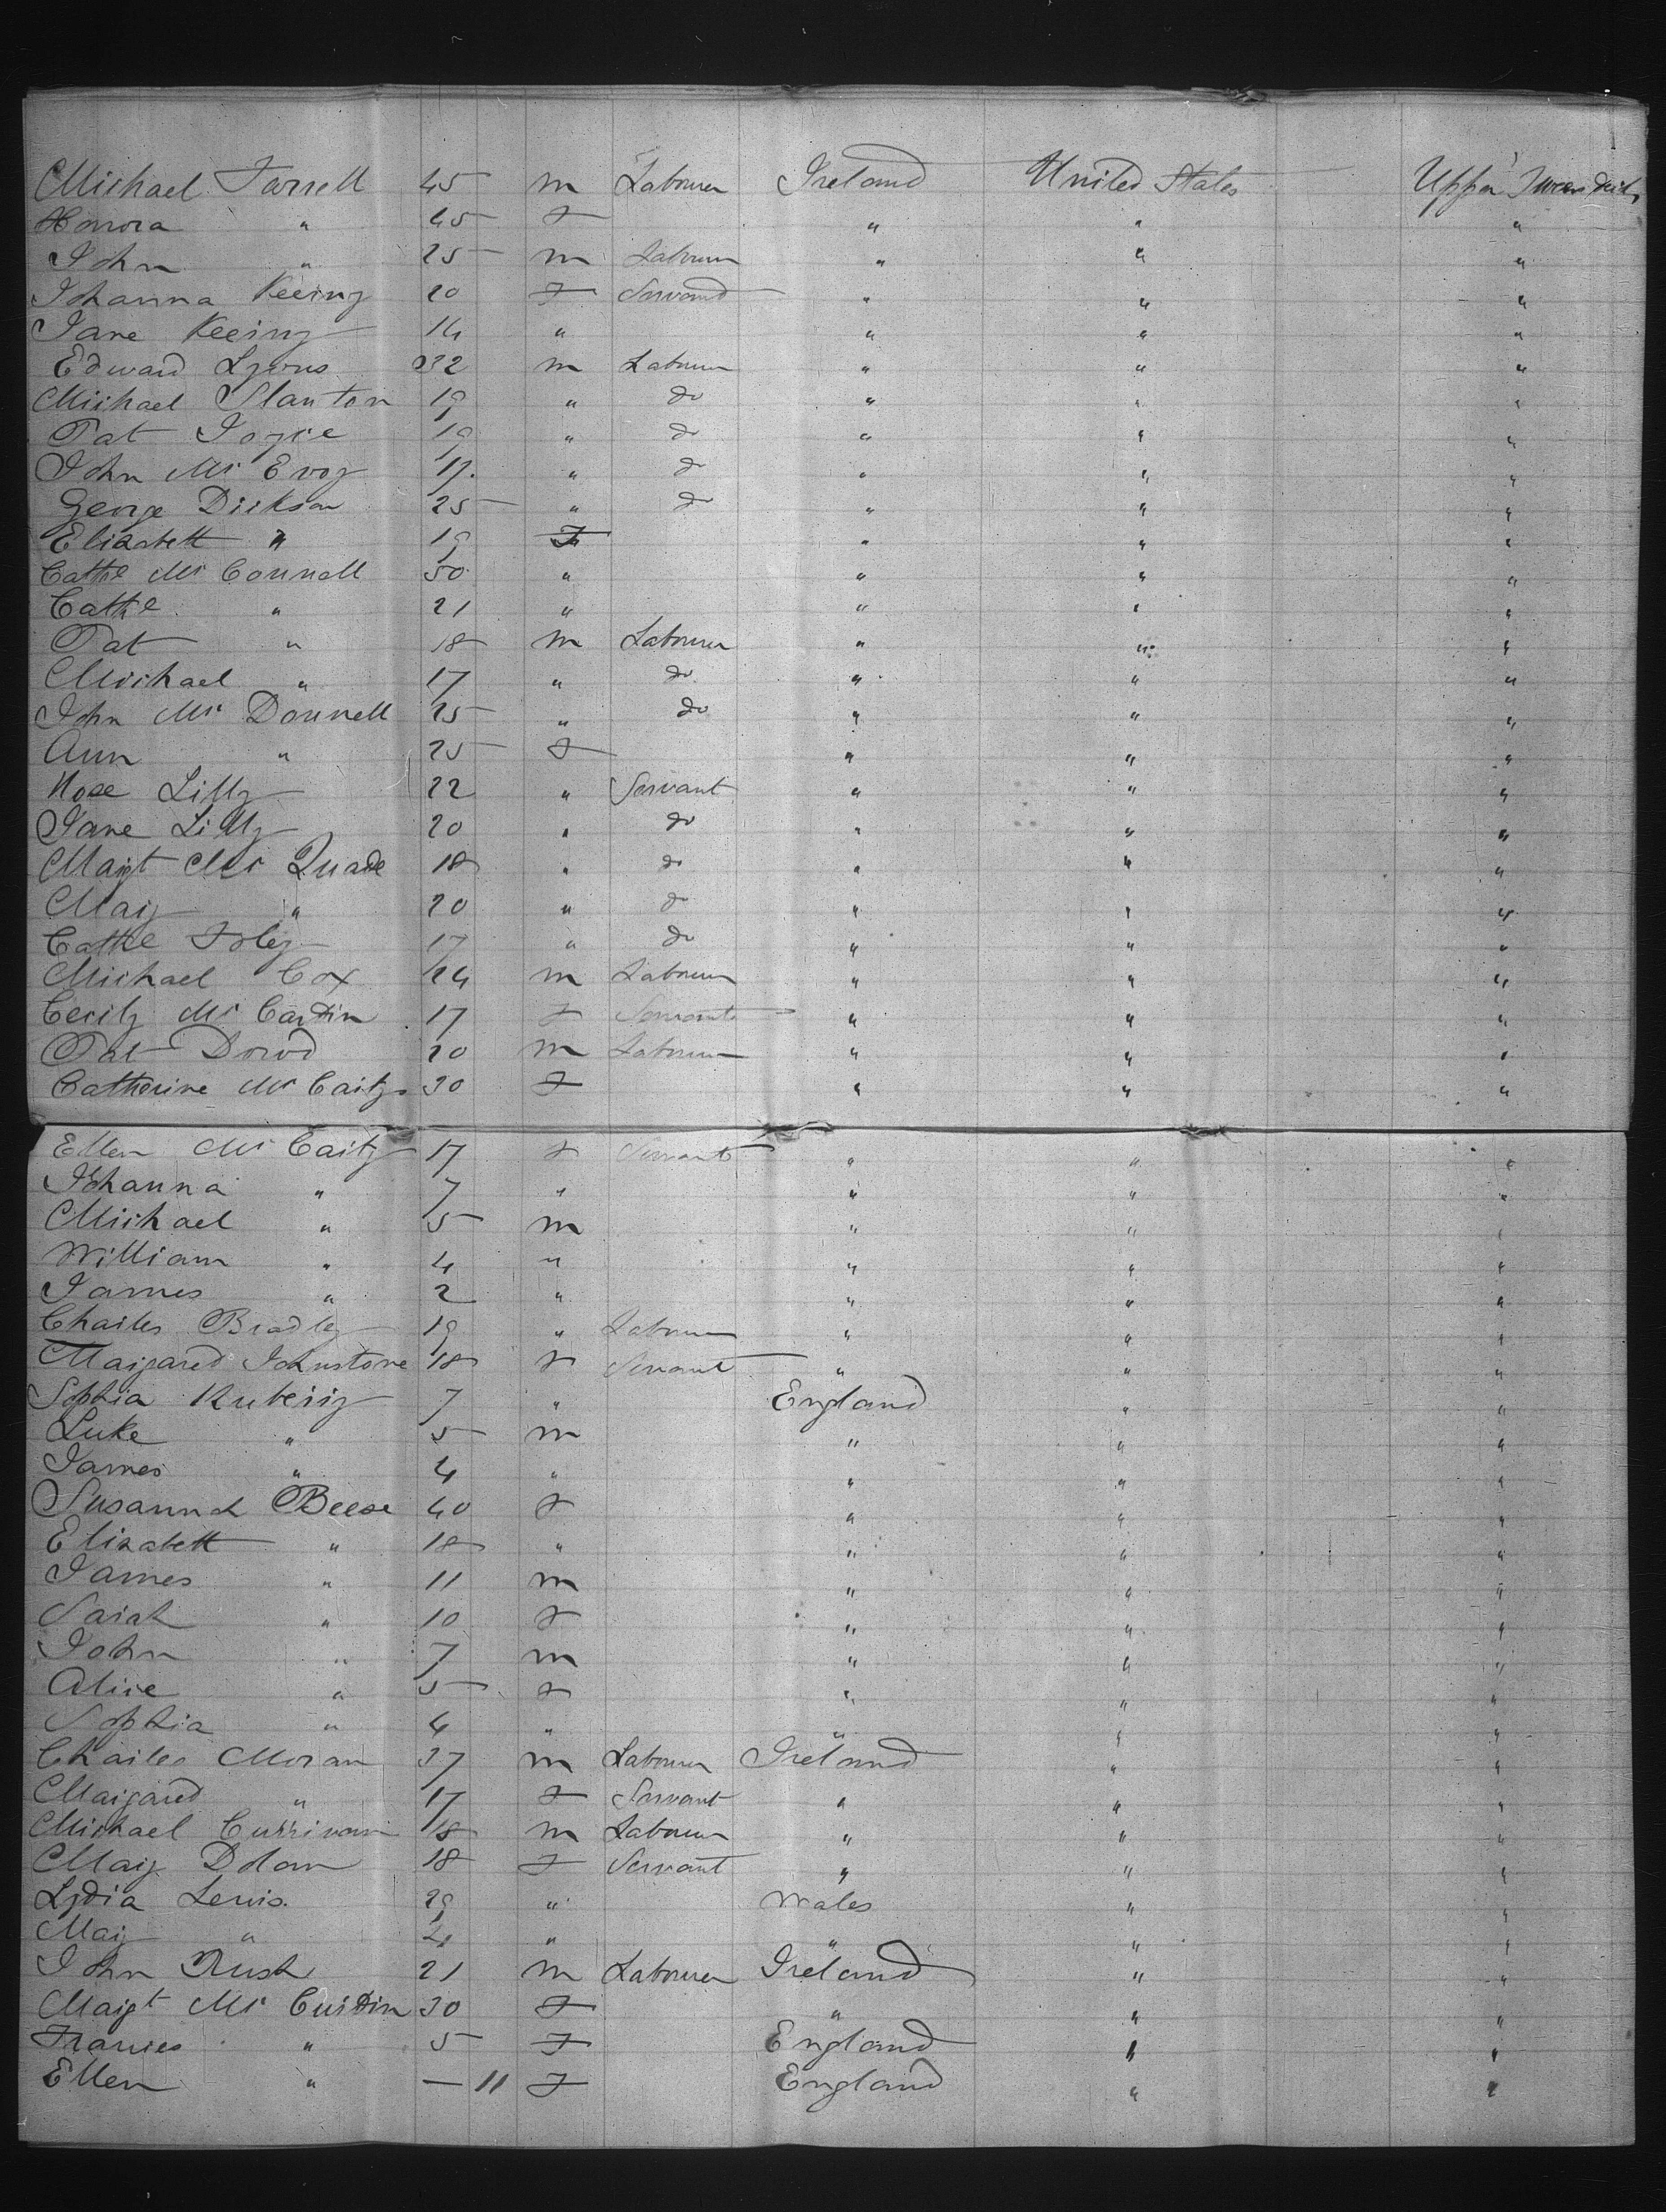 Michael Farrell 45 m Labourer Ireland United States Upper Tween Decks
Honora " 45 F " " "
John " 25 m Labourer " " "
Johanna Keeing 20 F Servant " " "
Jane Keeing 14 " " " "
Edward Lyons 32 m Labourer " " "
Michael Stanton 19 " do " " "
Pat Joyce 19 " do " " "
John Mc Evoy 19 " do " " "
George Dickson 25 " do " " "
Elizabeth " 19 F " " "
Cathe Mc Connell 50 " " " "
Cathe " 21 " " " "
Pat " 18 m Labourer " " "
Michael " 17 " do " " "
John Mc Donnell 25 " do " " "
Ann " 25 F " " "
Rose Lilly 22 " Servant " " "
Jane Lilly 20 " do " " "
Margt Mc Quade 18 " do " " "
Mary " 20 " do " " "
Cathe Foley 17 " do " " "
Michael Cox 24 m Labourer " " "
Cecily Mc Cardin 17 F Servant " " "
Pat Dowd 20 m Labourer " " "
Catherine Mc Carty 30 F " " "
Ellen Mc Carty 17 F Servant " " "
Johanna " 7 " " " "
Michael " 5 m " " "
William " 4 " " " "
James " 2 " " " "
Charles Bradley 19 " Labourer " " "
Margared Johnstone 18 F Servant " " "
Sophia Rubery 7 " England " "
Luke " 5 m " " "
James " 4 " " " "
Susannah Beese 40 F " " "
Elizabeth " 18 " " " "
James " 11 m " " "
Sarah " 10 F " " "
John " 7 m " " "
Alice " 5 F " " "
Sophia " 4 " " " "
Charles Moran 37 m Labourer Ireland " "
Margared " 17 F Servant " " "
Michael Currivan 18 m Labourer " " "
Mary Dolan 18 F Servant " " "
Lydia Lewis 29 " Wales " "
Mary " 4 " " " "
John Rush 21 m Labourer Ireland " "
Margt Mc Curdin 30 F " " "
Frances " 5 F England " "
Ellen " — 11 F England " "